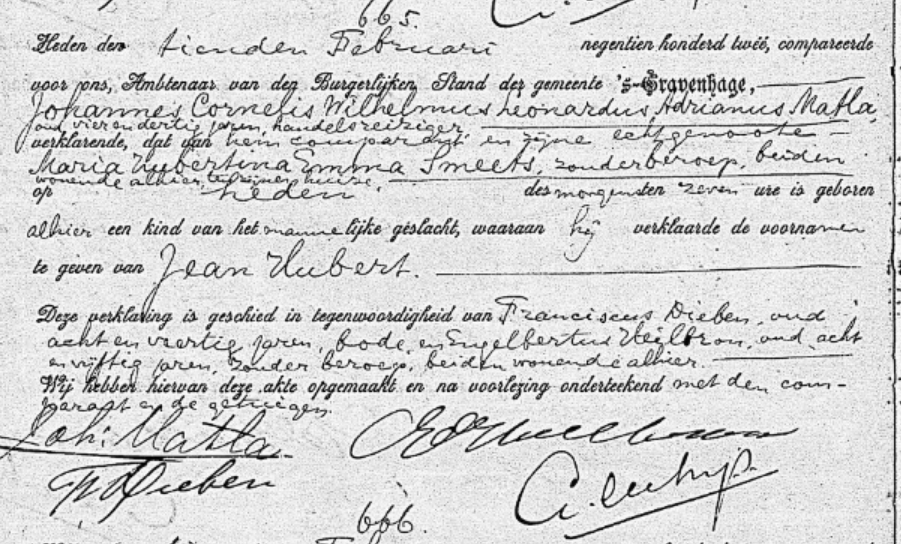 665.
Heden den tienden Februari negentien honderd twee, compareerde
voor ons, Ambtenaar van den Burgerlijken Stand der gemeente 's-Gravenhage,
Johannes Cornelis Wilhelmus Leonardus Adrianus Matla,
oud vierendertig jaren, handelsreiziger,
verklarende, dat van hem comparant en zijne echtgenoote
Maria Hubertina Emma Smeets, zonder beroep, beiden
wonende alhier, te zijnen huize,
op heden des morgens ten zeven ure is geboren
alhier een kind van het mannelijke geslacht, waaraan hij verklaarde de voornamen
te geven van Jean Hubert.
Deze verklaring is geschied in tegenwoordigheid van Franciscus Dieben, oud
acht en veertig jaren, bode, en Engelbertus Heijlbron, oud acht
en vijftig jaren, zonder beroep, beiden wonende alhier.
Wij hebben hiervan deze akte opgemaakt en na voorlezing onderteekend met den com-
parant en de getuigen.
Joh: Matla.
Dieben
666.